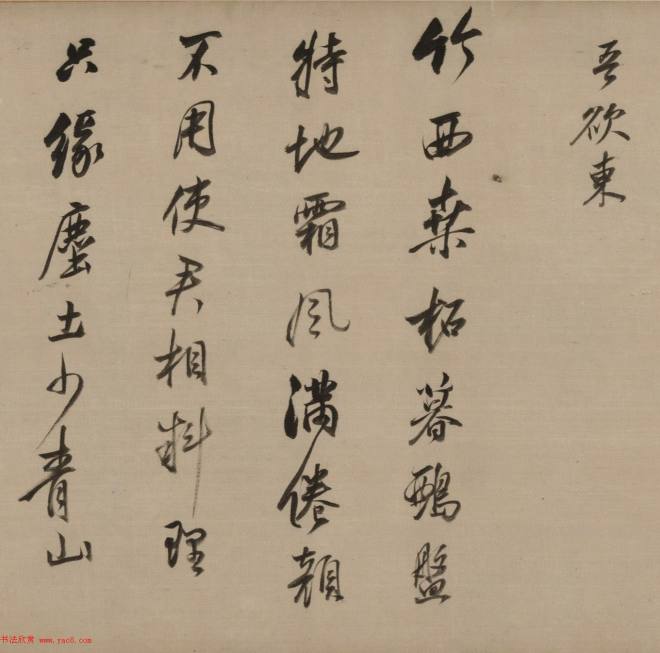 吾欲東
竹西桑柘暮鴉盤
特地霜風滿倦顏
不用使君相料理
只緣塵土少青山
书法欣赏 www.yac8.com